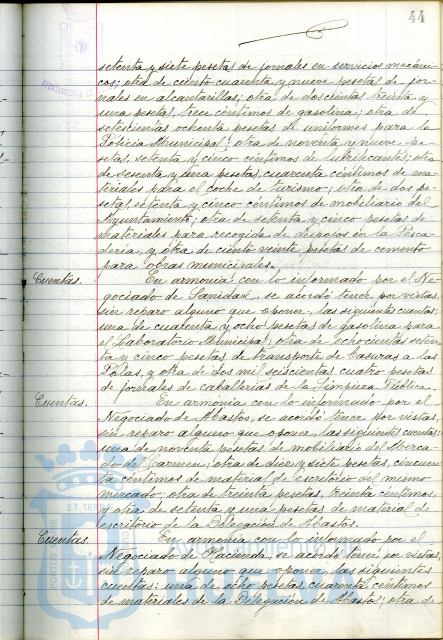 44
setenta y siete pesetas de jornales en servicios mecáni-
cos; otra de ciento cuarenta y nueve pesetas de jor-
nales en alcantarillas; otra de doscientas treinta y
una pesetas, trece céntimos de gasolina; otra de
setecientas ochenta pesetas de uniformes para la
Policía Municipal; otra de noventa y nueve pe-
setas, setenta y cinco céntimos de lubrificantes; otra
de sesenta y una pesetas, cuarenta céntimos de ma-
teriales para el coche de turismo; otra de dos pe-
setas, setenta y cinco céntimos de mobiliario del
Ayuntamiento; otra de setenta y cinco pesetas de
materiales para recogida de despojos en la Pesca-
dería, y otra de ciento veinte pesetas de cemento
para obras municipales.
Cuentas. En armonía con lo informado por el Ne-
gociado de Sanidad, se acordó tener por vistas,
sin reparo alguno que oponer, las siguientes cuentas:
una de cuarenta y ocho pesetas de gasolina para
el Laboratorio Municipal; otra de ochocientas seten-
ta y cinco pesetas de transporte de basuras a las
Flotas, y otra de dos mil seiscientas cuatro pesetas
de jornales de caballerías de la Limpieza Pública.
Cuentas. En armonía con lo informado por el
Negociado de Abastos, se acordó tener por vistas,
sin reparo alguno que oponer, las siguientes cuentas:
una de noventa pesetas de mobiliario del Merca-
do del Carmen; otra de diez y siete pesetas, cincuen-
ta céntimos de material de escritorio del mismo
mercado; otra de treinta pesetas, treinta céntimos,
y otra de setenta y una pesetas de material de
escritorio de la Delegación de Abastos.
Cuentas. En armonía con lo informado por el
Negociado de Hacienda, se acordó tener por vistas,
sin reparo alguno que oponer, las siguientes
cuentas: una de ocho pesetas, cuarenta céntimos
de materiales de la Delegación de Abastos; otra de